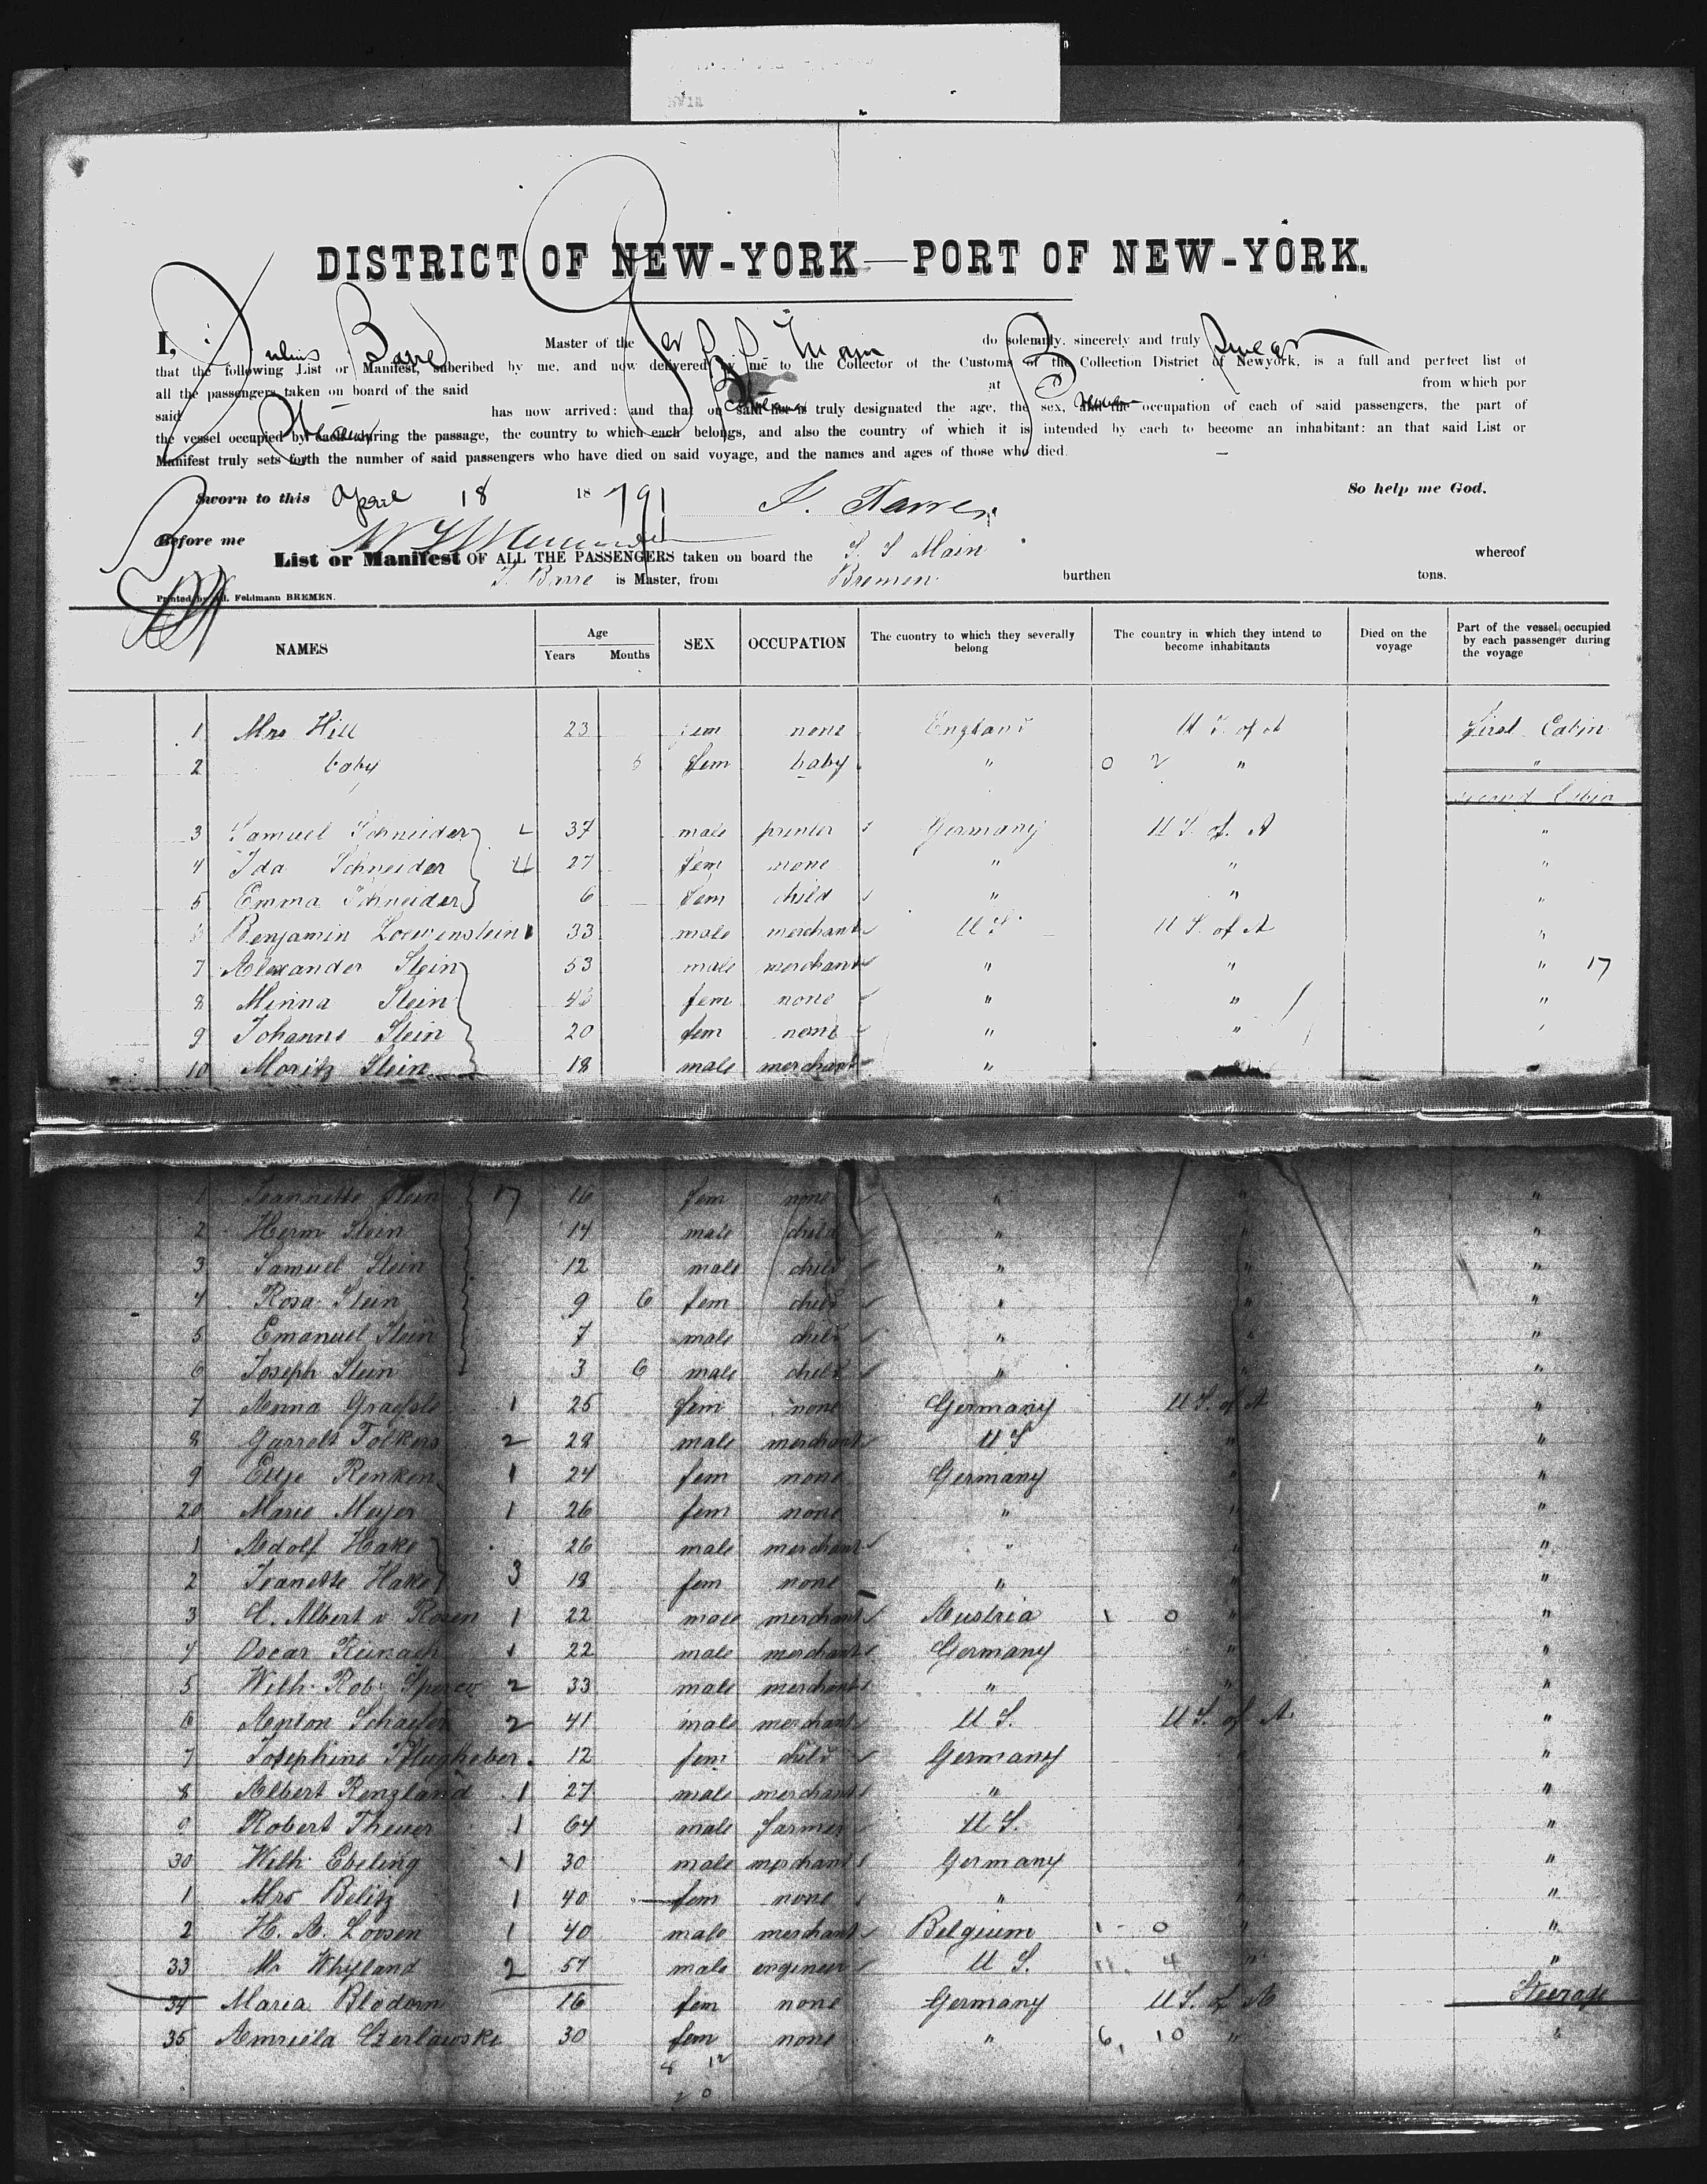 DISTRICT OF NEW-YORK—PORT OF NEW-YORK.
I, Julius Barre Master of the Ger S. S. Main do solemnly, sincerely and truly swear
that the following List or Manifest, subcribed by me, and now delivered by me to the Collector of the Customs of the Collection District of Newyork, is a full and perfect list of
all the passengers taken on board of the said at from which por
said has now arrived: and that on said list is truly designated the age, the sex, and the occupation of each of said passengers, the part of
the vessel occupied by each during the passage, the country to which each belongs, and also the country of which it is intended by each to become an inhabitant: an that said List or
Manifest truly sets forth the number of said passengers who have died on said voyage, and the names and ages of those who died.
Sworn to this April 18 18 791 J. Barre. So help me God.
Before me
List or Manifest OF ALL THE PASSENGERS taken on board the S. S Main whereof
J. Barre is Master, from Bremen burthen tons.
Printed by Feldmann BREMEN.
NAMES Age Years Mouths SEX OCCUPATION The cuontry to which they severally belong The country in which they intend to become inhabitants Died on the voyage Part of the vessel occupied by each passenger during the voyage
1 Mrs Hill 23 fem none England U S. of A First Cabin
2 baby 6 fem baby " 0 2 " "
Second Cabin
3 Samuel Schneider 37 male printer Germany U S. of. A "
4 Ida Schneider 4 27 fem none " " "
5 Emma Schneider 6 fem child " " "
6 Benjamin Loewenstein 1 33 male merchant U S. U S. of A "
7 Alexander Stein 53 male merchant " " " 17
8 Minna Stein 43 fem none " " "
9 Johanne Stein 20 fem none " " "
10 Moritz Stein 18 male merchant " "
1 Jeannette Stein 17 16 fem none " " "
2 Herm Stein 14 male child " " "
3 Samuel Stein 12 male child " " "
4 Rosa Stein 9 6 fem child " " "
5 Emanuel Stein 7 male child " " "
6 Joseph Stein 3 6 male child " " "
7 Anna 1 25 fem none Germany U S. of A "
8 Garrelt Folkers 2 28 male merchant U S " "
9 Ettje Renken 1 24 fem none Germany " "
20 Marie Meyer 1 26 fem none " " "
1 Adolf Hake 26 male merchant " " "
2 Jeanette Hake 3 18 fem none " " "
3 C. Albert v Rosen 1 22 male merchant Austria 1 0 " "
4 Oscar Reinach 1 22 male merchant Germany " "
5 Wilh. Rob. 2 33 male merchant " " "
6 Anton Schaefer 2 41 male merchant U S. U S. of A "
7 Josephine 12 fem child Germany "
8 Albert Rengland 1 27 male merchant " "
9 Robert Theuer 1 64 male farmer U S. "
30 Wilh. Ebeling 1 30 male merchant Germany "
1 Mrs Belitz 1 40 fem none " " "
2 H. A. Loosen 1 40 male merchant Belgium 1 0 " "
33 Mr Whyland 2 57 male engineer U S. 11, 4 " "
34 Maria Blodorn 16 fem none Germany U S. of A Steerage
35 30 fem none " 6, 10 " "
8 12
2 0